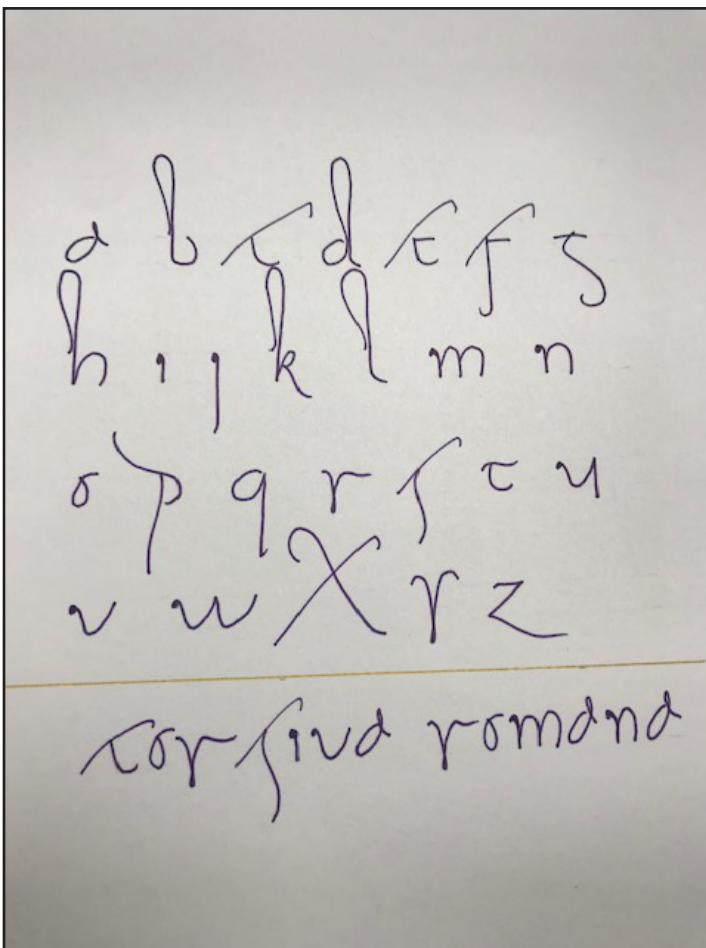 a b c d e f g
h i j k l m n
o p q r s t u
v w x y z
corsiva romana